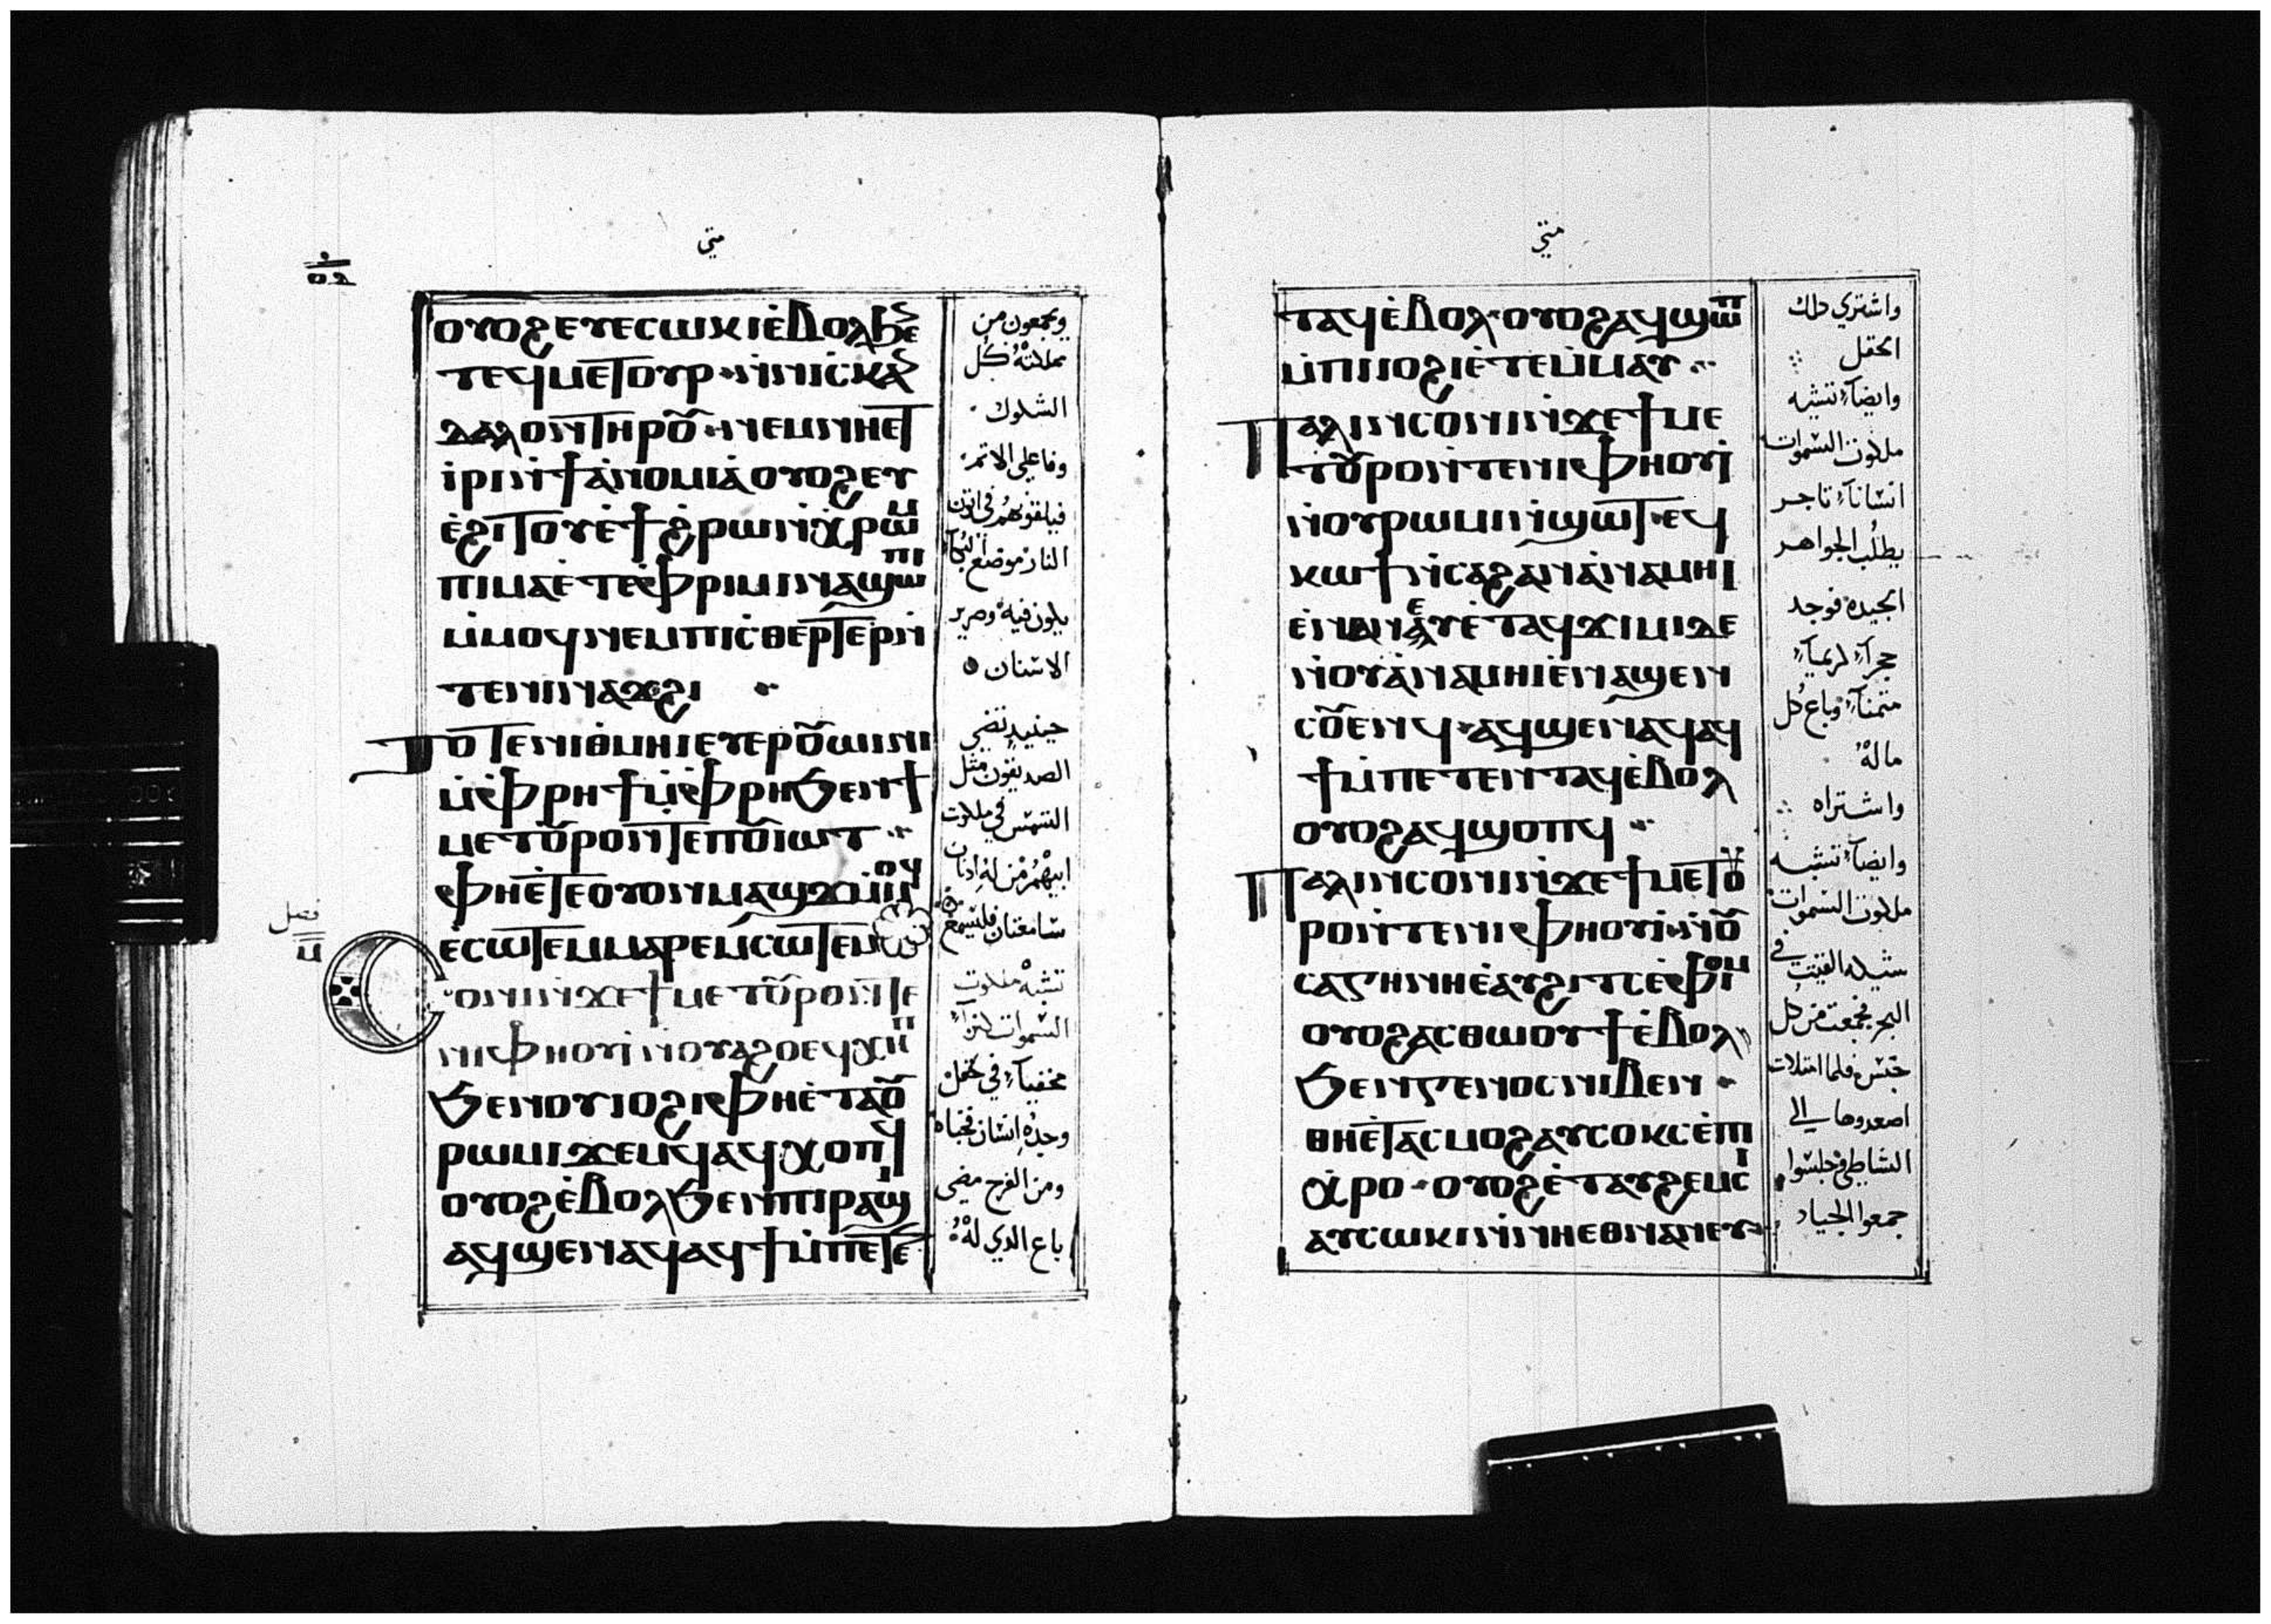 متي
ⲟⲩⲟϩ ⲉⲩⲉⲥⲱⲕⲓ ⲉ̀ⲃⲟⲗϧⲉ
ⲧⲉϥⲙⲉⲧⲟⲩⲣ ⲛ̀ⲛⲓⲥⲕⲁ
ⲇⲁⲗⲟⲛ ⲧⲏⲣⲟⲩ ⲛⲉⲙ ⲛⲏⲉⲧ
ⲓ̀ⲣⲓ ⲛ̀ϯⲁ̀ⲛⲟⲙⲓⲁ̀ ⲟⲩⲟϩ ⲉⲩ
ⲉ̀ϩⲓⲧⲟⲩ ⲉ̀ϯϩ̀ⲣⲱ ⲛ̀ⲭ̀ⲣⲱⲙ
ⲡⲓⲙⲁ ⲉ̀ⲧⲉ ⲫ̀ⲣⲓⲙⲓ ⲛⲁϣⲱⲡⲓ
ⲙ̀ⲙⲟϥ ⲛⲉⲙ ⲡⲓⲥ̀ⲑⲉⲣⲧⲉⲣ ⲛ̀
ⲧⲉ ⲛⲓⲛⲁϫϩⲓ
ⲧⲟⲧⲉ ⲛⲓⲑ̀ⲙⲏⲓ ⲉⲩⲉⲣⲟⲩⲱⲓⲛⲓ
ⲙ̀ⲫ̀ⲣⲏϯ ⲙ̀ⲫ̀ⲣⲏ ϧⲉⲛ ϯ
ⲙⲉⲧⲟⲩⲣⲟ ⲛ̀ⲧⲉ ⲡⲟⲩⲓⲱⲧ
ⲫⲏⲉ̀ⲧⲉ ⲟⲩⲟⲛ ⲙⲁϣϫ ⲙ̀ⲙⲟϥ
ⲉ̀ⲥⲱⲧⲉⲙ ⲙⲁⲣⲉϥⲥⲱⲧⲉⲙ
ⲥⲟⲛⲓ ⲛ̀ϫⲉ ϯⲙⲉⲧⲟⲩⲣⲟ ⲛ̀ⲧⲉ
ⲛⲓⲫⲏⲟⲩⲓ̀ ⲛ̀ⲟⲩⲁϩⲟ ⲉϥⲭⲏⲡ
ϧⲉⲛ ⲟⲩⲓⲟϩⲓ ⲫⲏⲉ̀ⲧⲁⲟⲩ
ⲣⲱⲙⲓ ϫⲉⲙϥ ⲁϥⲭⲟⲡϥ
ⲟⲩⲟϩ ⲉ̀ⲃⲟⲗ ϧⲉⲛ ⲡⲓⲣⲁϣⲓ
ⲁϥϣⲉⲛⲁϥ ⲁϥϯ ⲙ̀ⲡⲉⲧⲉ
ويجمعون من
مملكته كل
الشكوك
وفاعلي الاتم
فيلقونهم في اتون
النار موضع البكآ
يكون فيه وصرير
الاسنان
حينيد تضي
الصديقون مثل
الشمس في ملكوت
ابيهم من له ادنان
سامعتان فليسمع
تشبه ملكوت
السموات كنزاً
مخفياً في حقل
وجده انسان فخباه
ومن الفرح مضي
باع الدي له
فصل
متي
ⲛⲧⲁϥ ⲉ̀ⲃⲟⲗ ⲟⲩⲟϩ ⲁϥϣⲱⲡ
ⲙ̀ⲡⲓⲓⲟϩⲓ ⲉ̀ⲧⲉⲙ̀ⲙⲁⲩ
ⲡⲁⲗⲓⲛ ⲥⲟⲛⲓ ⲛ̀ϫⲉ ϯⲙⲉ
ⲧⲟⲩⲣⲟ ⲛ̀ⲧⲉ ⲛⲓⲫⲏⲟⲩⲓ̀
ⲛ̀ⲟⲩⲣⲱⲙⲓ ⲛ̀ϣⲱⲧ ⲉϥ
ⲕⲱϯ ⲛ̀ⲥⲁ ϩⲁⲛⲁ̀ⲛⲁⲙⲏⲓ
ⲉ̀ⲛⲁⲛⲉⲩ ⲉ̀ⲧⲁϥϫⲓⲙⲓ ⲇⲉ
ⲛ̀ⲟⲩⲁ̀ⲛⲁⲙⲏⲓ ⲉ̀ⲛⲁϣⲉⲛ
ⲥⲟⲩⲉⲛϥ ⲁϥϣⲉⲛⲁϥ ⲁϥ
ϯ ⲙ̀ⲡⲉⲧⲉⲛⲧⲁϥ ⲉ̀ⲃⲟⲗ
ⲟⲩⲟϩ ⲁϥϣⲟⲡϥ
ⲡⲁⲗⲓⲛ ⲥⲟⲛⲓ ⲛ̀ϫⲉ ϯⲙⲉⲧⲟⲩ
ⲣⲟ ⲛ̀ⲧⲉ ⲛⲓⲫⲏⲟⲩⲓ̀ ⲛ̀ⲟⲩ
ⲥⲁⲅⲏⲛⲏ ⲉ̀ⲁⲩϩⲓⲧⲥ ⲉ̀ⲫ̀ⲓⲟⲙ
ⲟⲩⲟϩ ⲁⲥⲑⲱⲟⲩϯ ⲉ̀ⲃⲟⲗ
ϧⲉⲛ ⲅⲉⲛⲟⲥ ⲛⲓⲃⲉⲛ
ⲑⲏⲉ̀ⲧⲁⲥⲙⲟϩ ⲁⲩⲥⲟⲕⲥ ⲉ̀ⲡⲓ
ⲭ̀ⲣⲟ ⲟⲩⲟϩ ⲉ̀ⲧⲁⲩϩⲉⲙⲥⲓ
ⲁⲩⲥⲱⲕⲓ ⲛ̀ⲛⲏⲉⲑⲛⲁⲛⲉⲩ
واشتري دلك
الحقل
وايضآ تشبه
ملكوت السموات
انسانآ تاجر
يطلب الجواهر
الجيده فوجد
حجرآ كريمآ
متمنآ وباع كل
ماله
واشتراه
وايضآ تشبه
ملكوت السموات
شبكه القيت في
البحر فجمعت من كل
جنس فلما امتلات
اصعدوها الي
الشاطي وجلسوا
جمعوا الجياد